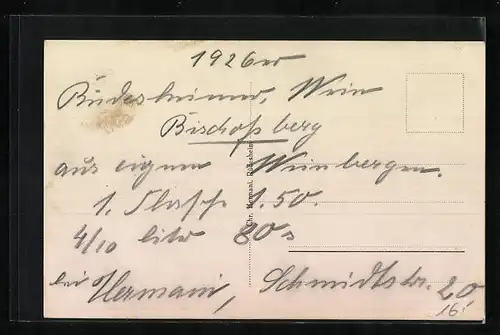 1926er
Rüdesheimer, Wein
Bischofsberg
aus eignen Weinbergen.
1. Flasche 1.50.
4/10 liter 80
bei Hermani, Schmidtstr. 20
16!
Chr. Hermani, Rüdesheim